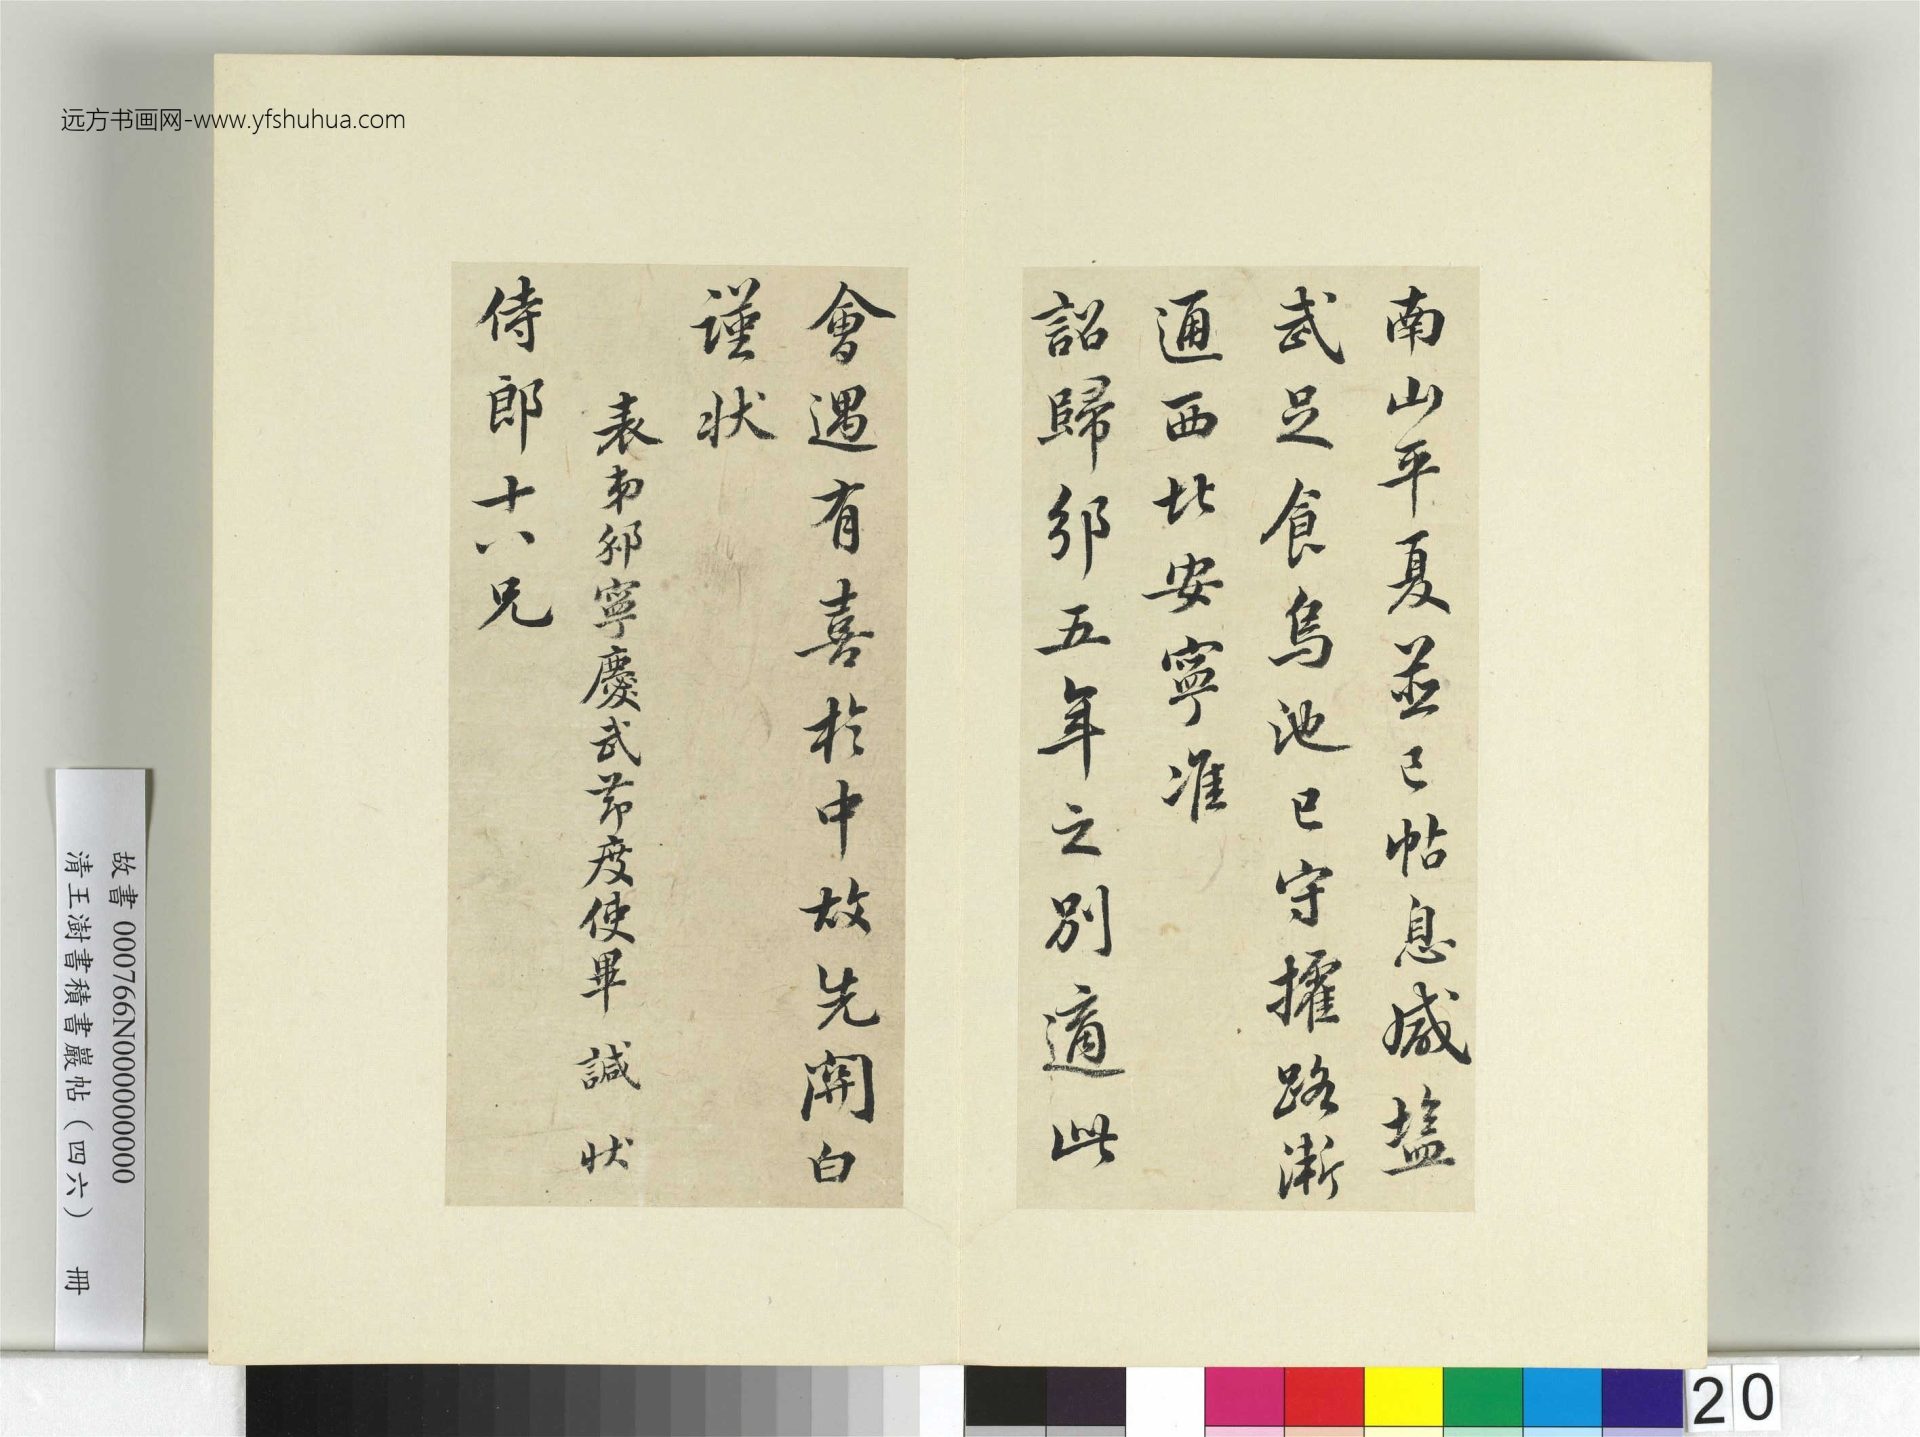 远方书画网-www.yfshuhua.com
南山平夏並已帖息咸塩
武足食烏池已守擢路漸
通西北安寧准
詔歸邠五年之別適此
會遇有喜於中故先開白
謹状
表弟邠寧慶武節度使畢諴状
侍郎十八兄
故書 000766N000000000
清王澍書積書巖帖（四六） 冊
20